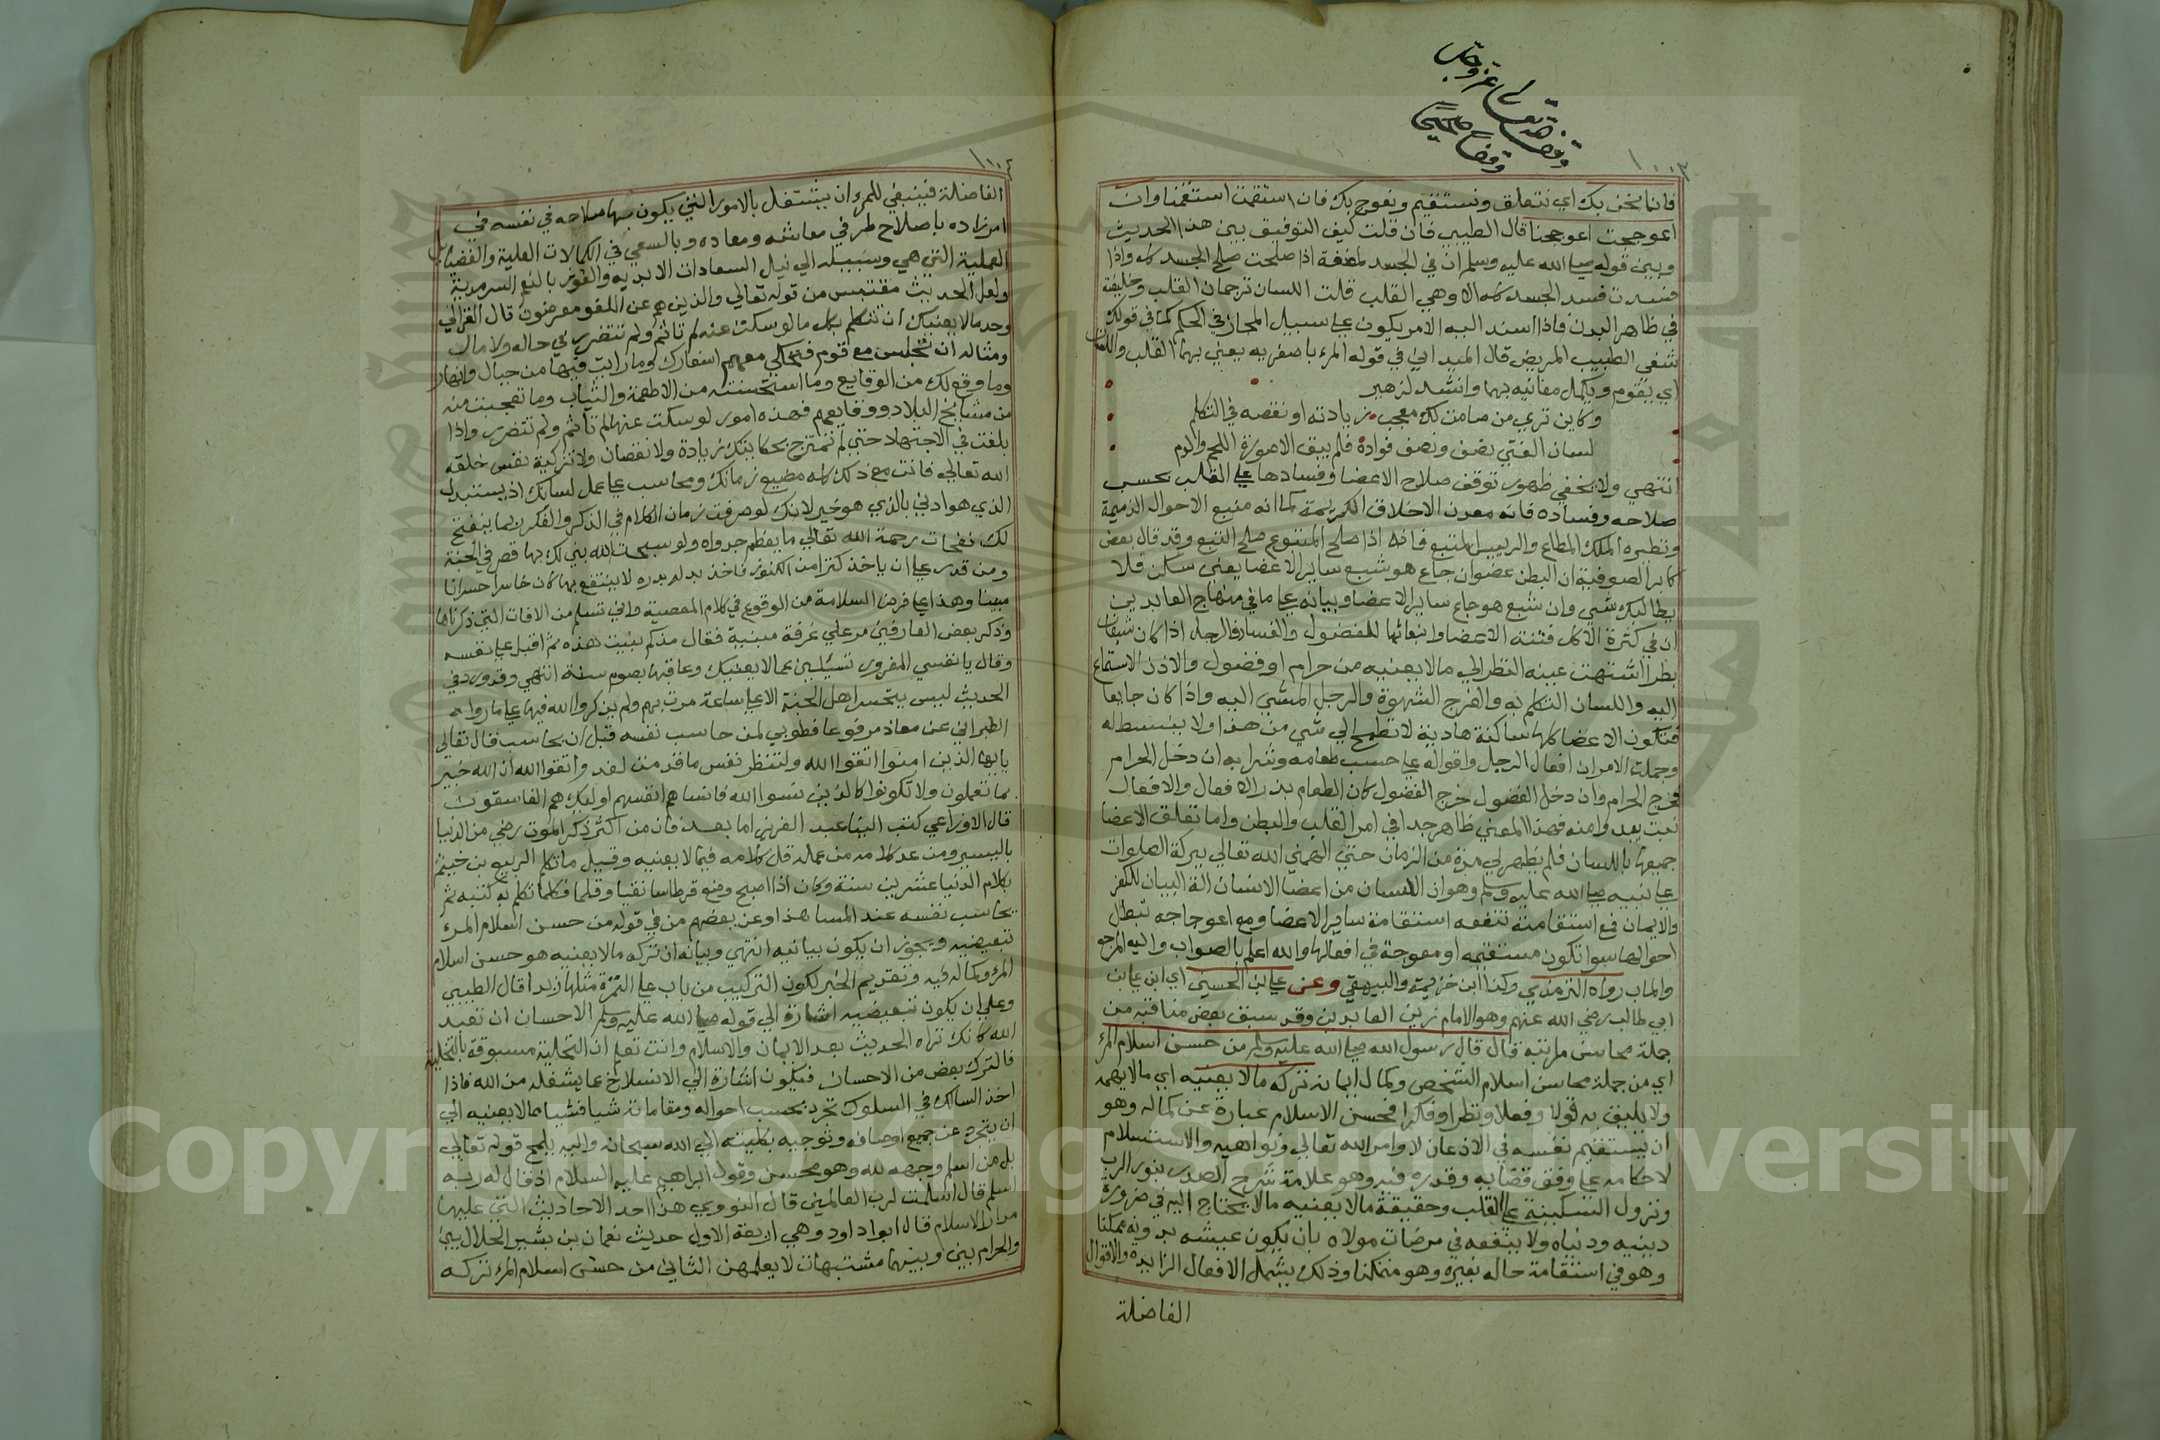 وقف لله تعالى عز وجل
وقفا صحيحا
١٠٠٣
فانما نحن بك اي نتعلق ونستقيم ونعوج بك فان استقمت استقمنا وان
اعوججت اعوججنا قال الطيبي فان قلت كيف التوفيق بين هذا الحديث
وبين قوله صلى الله عليه وسلم ان في الجسد لمضغة اذا صلحت صلح الجسد كله واذا
فسدت فسد الجسد كله الا وهي القلب قلت اللسان ترجمان القلب وخليفته
في ظاهر البدن فاذا اسند اليه الامر يكون على سبيل المجاز في الحكم كما في قولك
شفى الطبيب المريض قال الميداني في قوله المرء باصغريه يعني بهما القلب واللسان
اي يقوم ويكمل معانيه بهما وانشد لزهير
وكاين تري من صامت لك معجب زيادته او نقصه في التكلم
لسان الفتي نصف ونصف فواده فلم يبق الا صورة اللحم والدم
انتهي ولا يخفي ظهور توقف صلاح الاعضا وفسادها على القلب بحسب
صلاحه وفساده فانه معدن الاخلاق الكريمة كما انه منبع الاحوال الذميمة
ونظيره الملك المطاع والرييس المتبع فانه اذا صلح المتبوع صلح التبع وقد قال بعض
كابر الصوفية ان البطن عضو ان جاع هو شبع ساير الاعضا يعني سكن فلا
يطالبك بشي وان شبع هو جاع ساير الاعضا وبيانه على ما في منهاج العابدين
ان في كثرة الاكل فتنة الاعضا وانبعاثها للفضول والفساد فالرجل اذا كان شبعان
بطرا اشتهت عينه النظر الي ما لا يعنيه من حرام او فضول والاذن الاستماع
اليه واللسان التكلم به والفرج الشهوة والرجل المشي اليه واذا كان جايعا
فتكون الاعضا كلها ساكنة هادية لا تطمح الي شي من هذا ولا ينبسط له
وجملة الامر ان افعال الرجل واقواله على حسب طعامه وشرابه ان دخل الحرام
خرج الحرام وان دخل الفضول خرج الفضول كان الطعام بذر الافعال والافعال
نبت يبدو منه فهذا المعني ظاهر جدا في امر القلب والبطن واما تعلق الاعضا
جميعها باللسان فلم يظهر لي مدة من الزمان حتي الهمني الله تعالي ببركة الصلوات
على نبيه صلى الله عليه وسلم وهو ان اللسان من اعضا الانسان الة البيان للكفر
والايمان فمع استقامته تنفعه استقامة ساير الاعضا ومع اعوجاجه تبطل
احوالها سوا تكون مستقيمة او معوجة في افعالها والله اعلم بالصواب واليه المرجع
والماب رواه الترمذي وكذا ابن خزيمة والبيهقي وعن علي بن الحسين اي ابن علي بن
ابي طالب رضي الله عنهم وهو الامام زين العابدين وقد سبق بعض مناقبه من
جملة محاسن مراتبه قال قال رسول الله صلى الله عليه وسلم من حسن اسلام المرء
اي من جملة محاسن اسلام الشخص وكمال ايمانه تركه ما لا يعنيه اي ما لا يهمه
ولا يليق به قولا وفعلا ونظرا وفكرا فحسن الاسلام عبارة عن كماله وهو
ان يستقيم نفسه في الاذعان لاوامر الله تعالي ونواهيه والاستسلام
لاحكامه على وفق قضايه وقدره فيه وهو علامة شرح الصدر بنور الرب
ونزول السكينة على القلب وحقيقة ما لا يعنيه ما لا يحتاج اليه في ضرورة
دينيه ودنياه ولا ينفعه في مرضات مولاه بان يكون عيشه بدونه ممكنا
وهو في استقامة حاله بغيره وهو متمكنا وذلك يشمل الافعال الزايدة والاقوال
الفاضلة
١٠٠٤
الفاضلة فينبغي للمرء ان يشتغل بالامور التي يكون بها صلاحه في نفسه في
امر زاده باصلاح طرفي معاشه ومعاده وبالسعي في الكمالات العلية والفضايل
العملية التي هي وسيلة الي نيل السعادات الابدية والفوز بالنعم السرمدية
ولعل الحديث مقتبس من قوله تعالي والذين هم عن اللغو معرضون قال الغزالي
وحد ما لا يعنيك ان تتكلم بكل ما لو سكت عنه لم تاثم ولم تتضرر في حاله ولا مال
ومثاله ان تجلس مع قوم فتحكي معهم اسفارك وما رايت فيها من جبال وانهار
وما وقع لك من الوقايع وما استحسنته من الاطعمة والثياب وما تعجبت منه
من مشايخ البلاد ووقايعهم فهذه امور لو سكت عنها لم تاثم ولم تتضرر واذا
بلغت في الاجتهاد حتي لم تمتزج بحكايتك زيادة ولا نقصان ولا تزكية نفس خلقه
الله تعالي فانت مع ذلك كله مضيع زمانك ومحاسب على عمل لسانك اذ يستبدل
الذي هو ادني بالذي هو خير لانك لو صرفت زمان الكلام في الذكر والفكر ربما ينفتح
لك نفحات رحمة الله تعالي ما يعظم جدواه ولو سبحت الله بني لك بها قصر في الجنة
ومن قدر على ان ياخذ كنزا من الكنوز فاخذ بدله بدرة لا ينتفع بها كان خاسرا خسرانا
مبينا وهذا على فرض السلامة من الوقوع في كلام المعصية واني تسلم من الافات التي ذكرناها
وذكر بعض العارفين مر علي غرفة مبنية فقال مذ كم بنيت هذه ثم اقبل على نفسه
وقال يا نفسي المغرور تسيلين عما لا يعنيك وعاقبها بصوم سنة انتهي وقد ورد في
الحديث ليس يتحسر اهل الجنة الا على ساعة مرت بهم ولم يذكروا الله فيها على ما رواه
الطبراني عن معاذ مرفوعا فطوبي لمن حاسب نفسه قبل ان يحاسب قال تعالي
يا ايها الذين امنوا اتقوا الله ولتنظر نفس ما قدمت لغد واتقوا الله ان الله خبير
بما تعملون ولا تكونوا كالذين نسوا الله فانساهم انفسهم اوليك هم الفاسقون
قال الاوزاعي كتب الينا عبد العزيز اما بعد فان من اكثر ذكر الموت رضي من الدنيا
باليسير ومن عد كلامه من عمله قل كلامه فيما لا يعنيه وقيل ما تكلم الربيع بن خيثم
بكلام الدنيا عشرين سنة وكان اذا اصبح وضع قرطاسا نقيا وقلما فكلما تكلم به كتبه ثم
يحاسب نفسه عند المسا هذا وعن بعضهم من في قوله من حسن اسلام المرء
تبعيضيه ويجوز ان يكون بيانيه انتهي وبيانه ان تركه ما لا يعنيه هو حسن اسلام
المرء وكماله فيه وتقديم الخبر لكون التركيب من باب على التمرة مثلها زبدا قال الطيبي
وعلي ان يكون تبعيضيه اشارة الي قوله صلى الله عليه وسلم الاحسان ان تعبد
الله كانك تراه الحديث بعد الايمان والاسلام وانت تعلم ان التحلية مسبوقة بالتخلية
فالترك بعض من الاحسان فيكون اشارة الي الانسلاخ عما يشغله من الله فاذا
اخذ السالك في السلوك تجرد بحسب احواله ومقاماته شيا فشيا مما لا يعنيه الي
ان يتجرد عن جميع اوصافه وتوجيه بكليته الي الله سبحانه واليه يلمح قوله تعالي
بلى من اسلم وجهه لله وهو محسن وقول ابراهيم عليه السلام اذ قال له ربه
اسلم قال اسلمت لرب العالمين قال النووي هذا احد الاحاديث التي عليها
مدار الاسلام قال ابو داود وهي اربعة الاول حديث نعمان بن بشير الحلال بين
والحرام بين وبينهما مشتبهات لا يعلمهن الثاني من حسن اسلام المرء تركه
Copyright © King Saud University